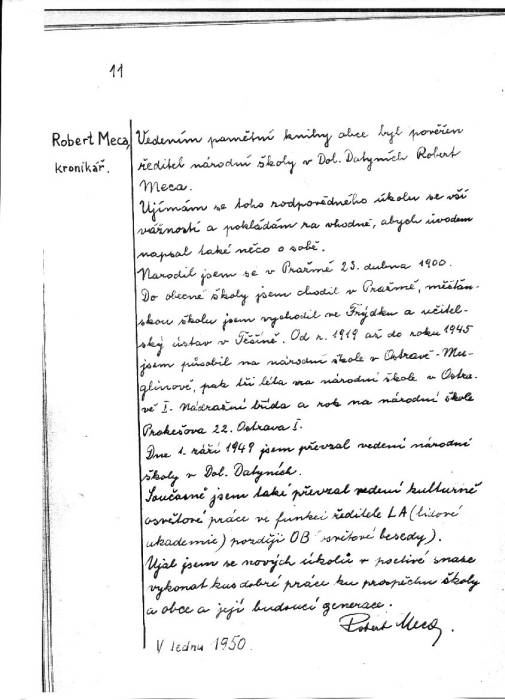 11
Robert Meca,
kronikář.
Vedením pamětní knihy obce byl pověřen
ředitel národní školy v Dol. Datyních Robert
Meca.
Ujímám se toho zodpovědného úkolu se vší
vážností a pokládám za vhodné, abych úvodem
napsal také něco o sobě.
Narodil jsem se v Pražmě 23. dubna 1900.
Do obecné školy jsem chodil v Pražmě, měšťan-
skou školu jsem vychodil ve Frýdku a učitel-
ský ústav v Těšíně. Od r. 1919 až do roku 1945
jsem působil na národní škole v Ostravě-Mug-
linově, pak tři léta na národní škole v Ostra-
vě I. Nádražní třída a rok na národní škole
Prokešova 22. Ostrava I.
Dne 1. září 1949 jsem převzal vedení národní
školy v Dol. Datyních.
Současně jsem také převzal vedení kulturně
osvětové práce ve funkci ředitele LA (lidové
akademie) později OB (světové besedy).
Ujal jsem se nových úkolů v poctivé snaze
vykonat kus dobré práce ku prospěchu školy
a obce a její budoucí generace.
Robert Meca.
V lednu 1950.